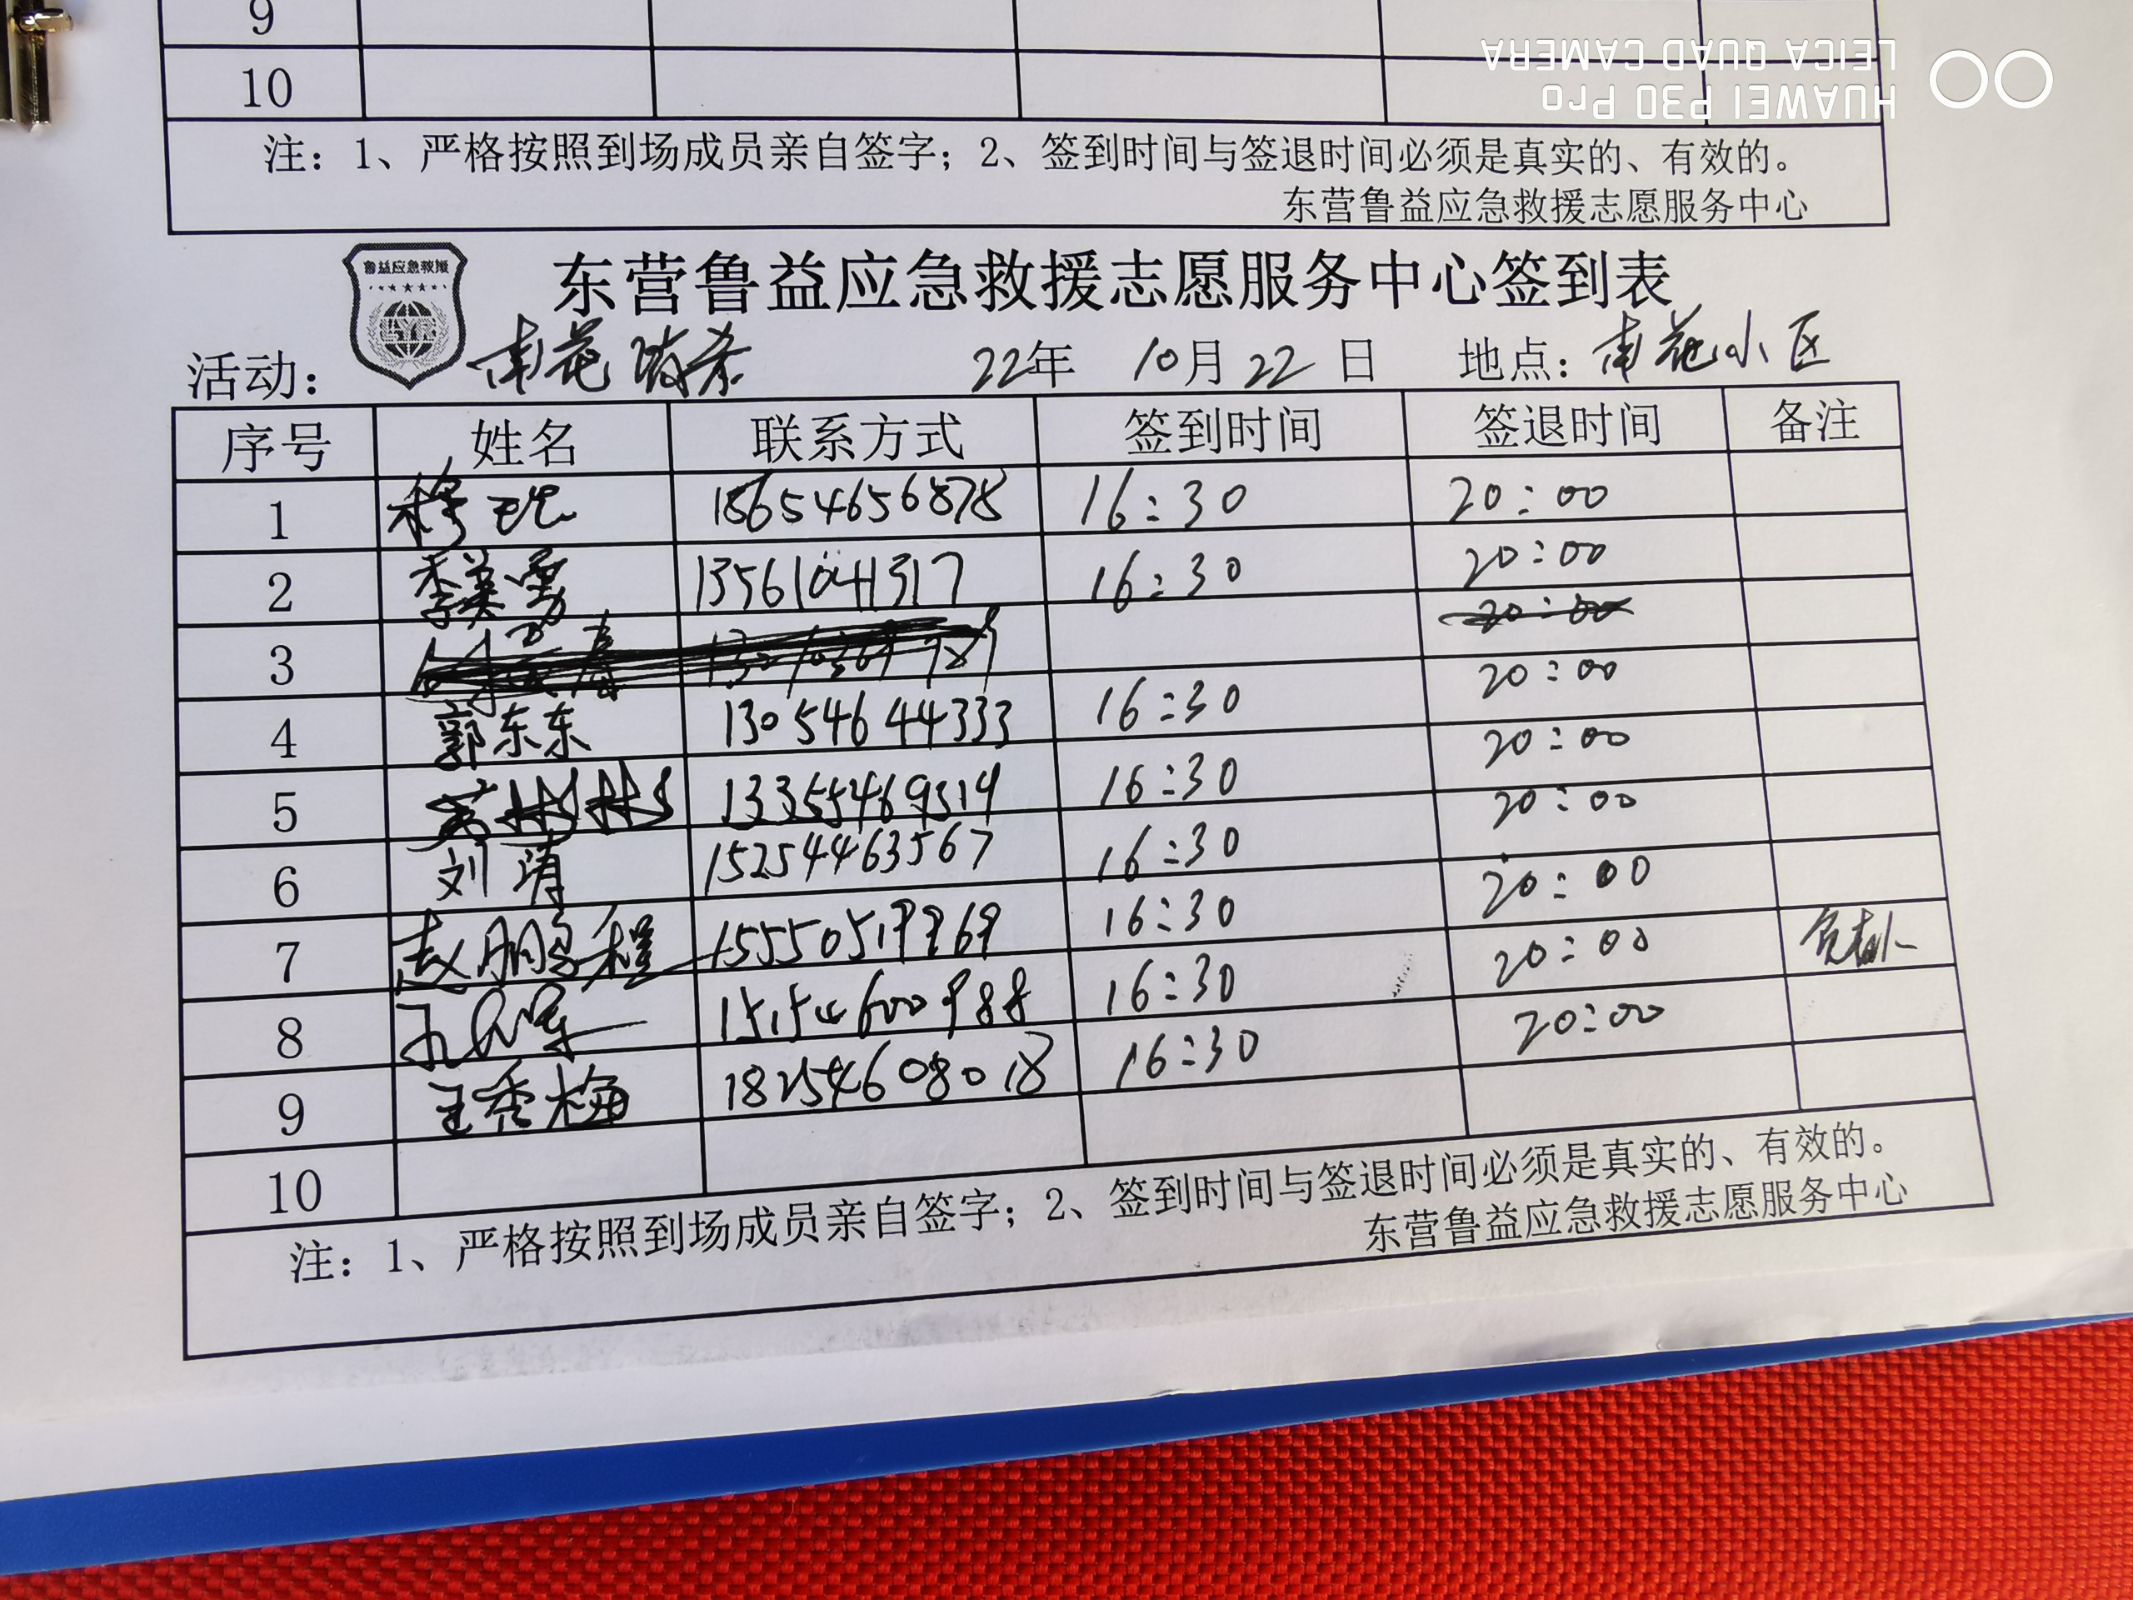 9
10
注：1、严格按照到场成员亲自签字；2、签到时间与签退时间必须是真实的、有效的。
东营鲁益应急救援志愿服务中心
LEICA QUAD CAMERA
HUAWEI P30 Pro
鲁益应急救援
东营鲁益应急救援志愿服务中心签到表
活动：南花 22年 10月22日 地点：南花小区
序号 姓名 联系方式 签到时间 签退时间 备注
1 穆 18654656878 16:30 20:00
2 李美勇 13561041317 16:30 20:00
3 20:00
4 郭东东 13054644333 16:30 20:00
5 林林 13355469319 16:30 20:00
6 刘涛 15254463567 16:30 20:00
7 赵鹏程 15550519969 16:30 20:00
8 15154600988 16:30 20:00 负责人
9 王秀梅 18254608018 16:30 20:00
10
注：1、严格按照到场成员亲自签字；2、签到时间与签退时间必须是真实的、有效的。
东营鲁益应急救援志愿服务中心